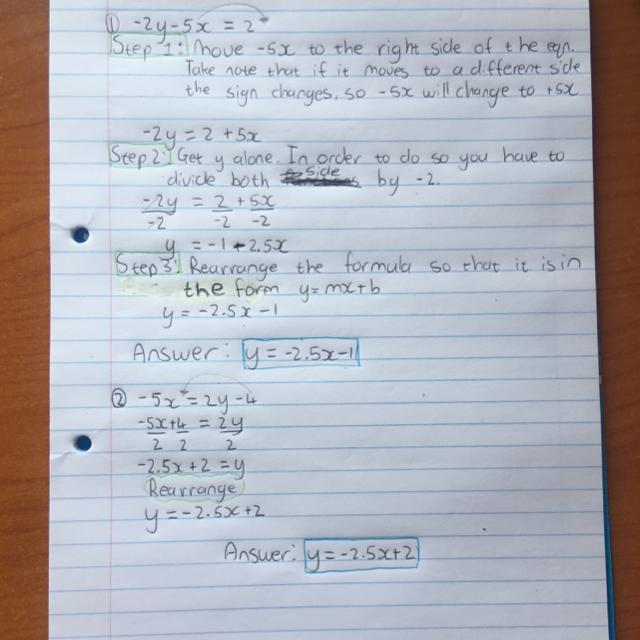 ① -2y-5x = 2
Step 1: Move -5x to the right side of the eqn.
Take note that if it moves to a different side
the sign changes, so -5x will change to +5x
-2y = 2 + 5x
Step 2: Get y alone. In order to do so you have to
divide both side by -2.
-2y = 2 + 5x
-2 -2 -2
y = -1 - 2.5x
Step 3: Rearrange the formula so that it is in
the form y=mx+b
y = -2.5x - 1
Answer: y = -2.5x-1
② -5x = 2y-4
-5x+4 = 2y
2 2 2
-2.5x + 2 = y
Rearrange
y = -2.5x+2
Answer: y = -2.5x+2